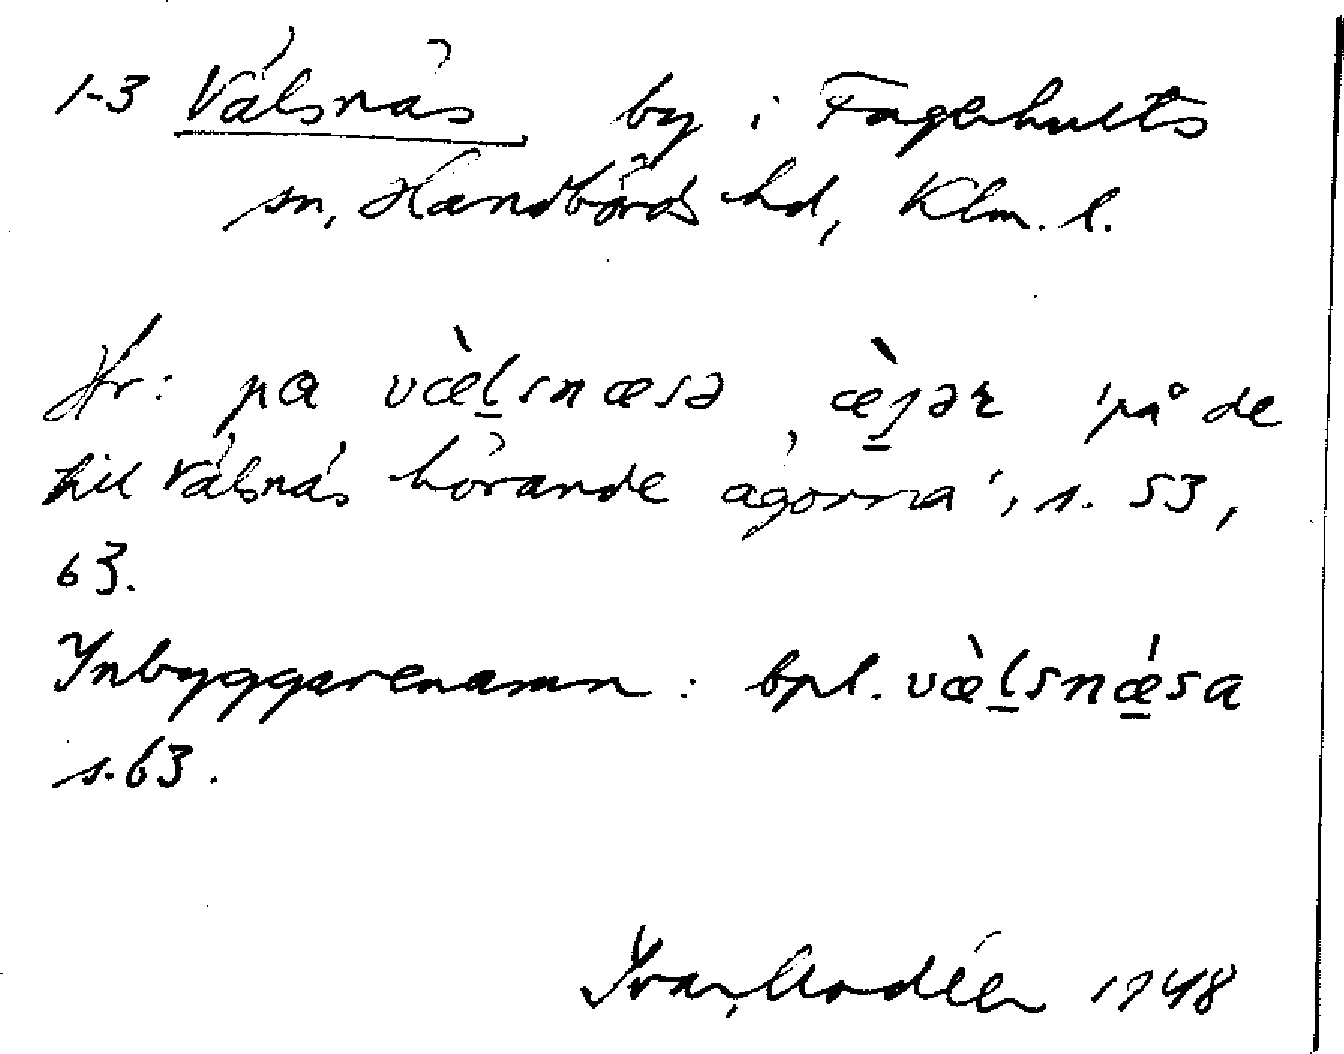 1-3 Välsnäs by i Fagerhults
sn, Handbörds hd, Klm. l.
Hr: pa væ̀l̲snæsə æ̲̀jər 'på de
till Välsnäs hörande ägorna', s. 53,
63.
Inbyggarenamn: bpl. væ̀l̲snǽ̲sa
s. 63.
Ivar Modéer 1948